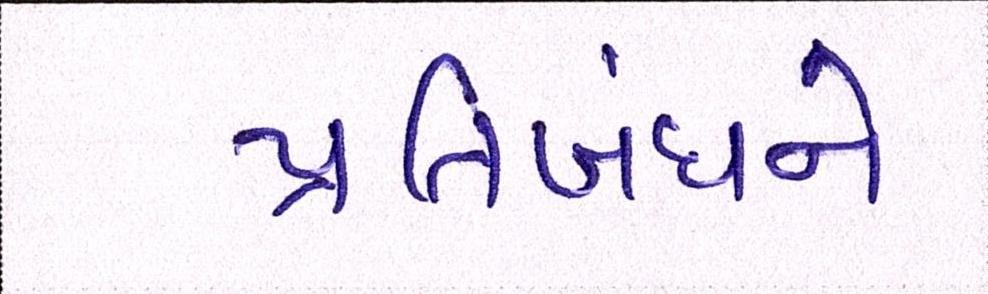 પ્રતિબંધને